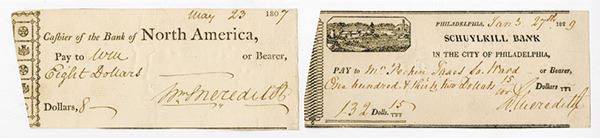 May 23 1807
Cashier of the Bank of North America,
Pay to Wm or Bearer,
Eight Dollars
Wm Meredith
Dollars, 8
PHILADELPHIA, 27th
SCHUYLKILL BANK
IN THE CITY OF PHILADELPHIA,
PAY to Mr or Bearer,
One hundred & thirty two Dollars 15/100 Dollars
132 Dolls. 15/100
Meredith